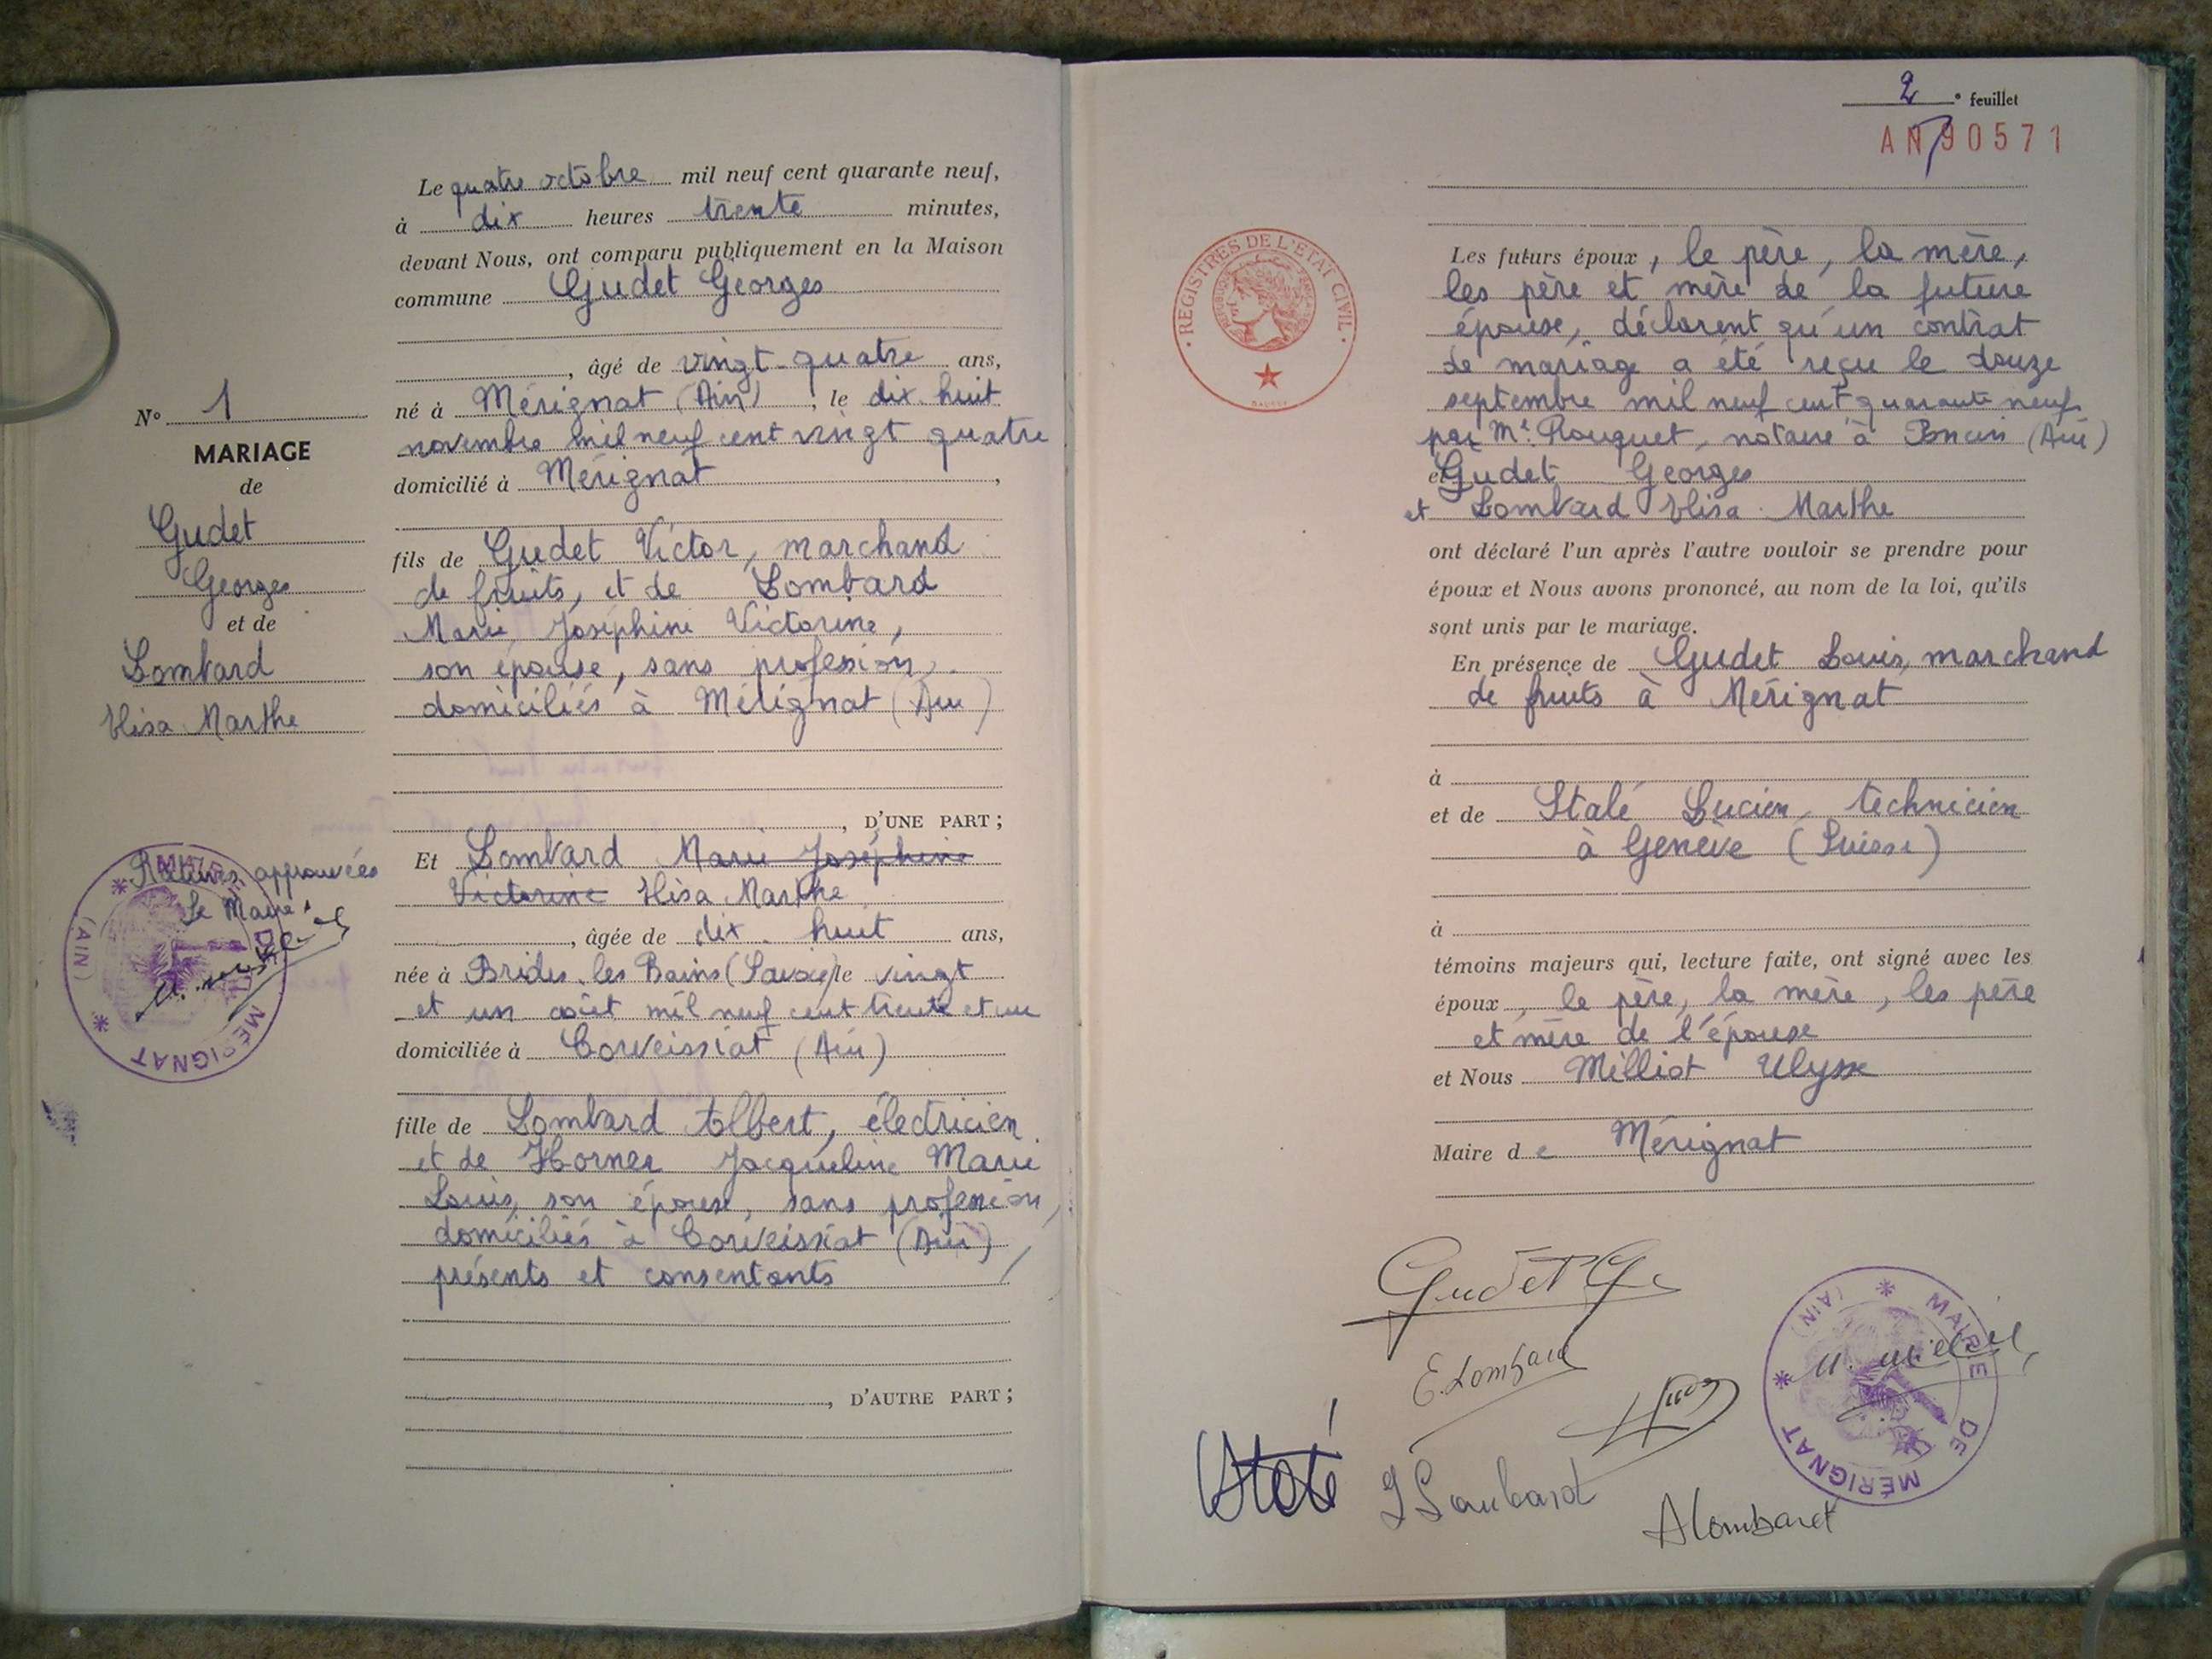 Le quatre octobre mil neuf cent quarante neuf,
à dix heures trente minutes,
devant Nous, ont comparu publiquement en la Maison
commune Gudet Georges
, âgé de vingt-quatre ans,
né à Mérignat (Ain), le dix huit
novembre mil neuf cent vingt quatre
domicilié à Mérignat,
fils de Gudet Victor, marchand
de fruits, et de Lombard
Marie Joséphine Victorine,
son épouse, sans profession,
domiciliés à Mérignat (Ain)
, D'UNE PART ;
Et Lombard Marie Joséphine
Victorine Elisa Marthe
, âgée de dix huit ans,
née à Brides les Bains (Savoie) le vingt
et un août mil neuf cent trente et un
domiciliée à Corveissiat (Ain)
fille de Lombard Albert, électricien
et de Horner Jacqueline Marie
Louis, son épouse, sans profession,
domiciliés à Corveissiat (Ain)
présents et consentants
, D'AUTRE PART ;
N° 1
MARIAGE
de
Gudet
Georges
et de
Lombard
Elisa Marthe
Ratures approuvées
Le Maire,
MAIRE DE MÉRIGNAT
(AIN)
2 e feuillet
AN 90571
REGISTRES DE L'ÉTAT CIVIL
Les futurs époux, le père, la mère,
les père et mère de la future
épouse, déclarent qu'un contrat
de mariage a été reçu le douze
septembre mil neuf cent quarante neuf
par Me Plouquet, notaire à Poncin (Ain)
et Gudet Georges
et Lombard Elisa Marthe
ont déclaré l'un après l'autre vouloir se prendre pour
époux et Nous avons prononcé, au nom de la loi, qu'ils
sont unis par le mariage.
En présence de Gudet Louis, marchand
de fruits à Mérignat
à
et de Stalé Lucien, technicien
à Genève (Suisse)
à
témoins majeurs qui, lecture faite, ont signé avec les
époux, le père, la mère, les père
et mère de l'épouse
et Nous Milliot Ulysse
Maire de Mérignat
Gudet Ge
E. Lombard
J Lombard
A Lombard
MAIRE DE MÉRIGNAT
(AIN)